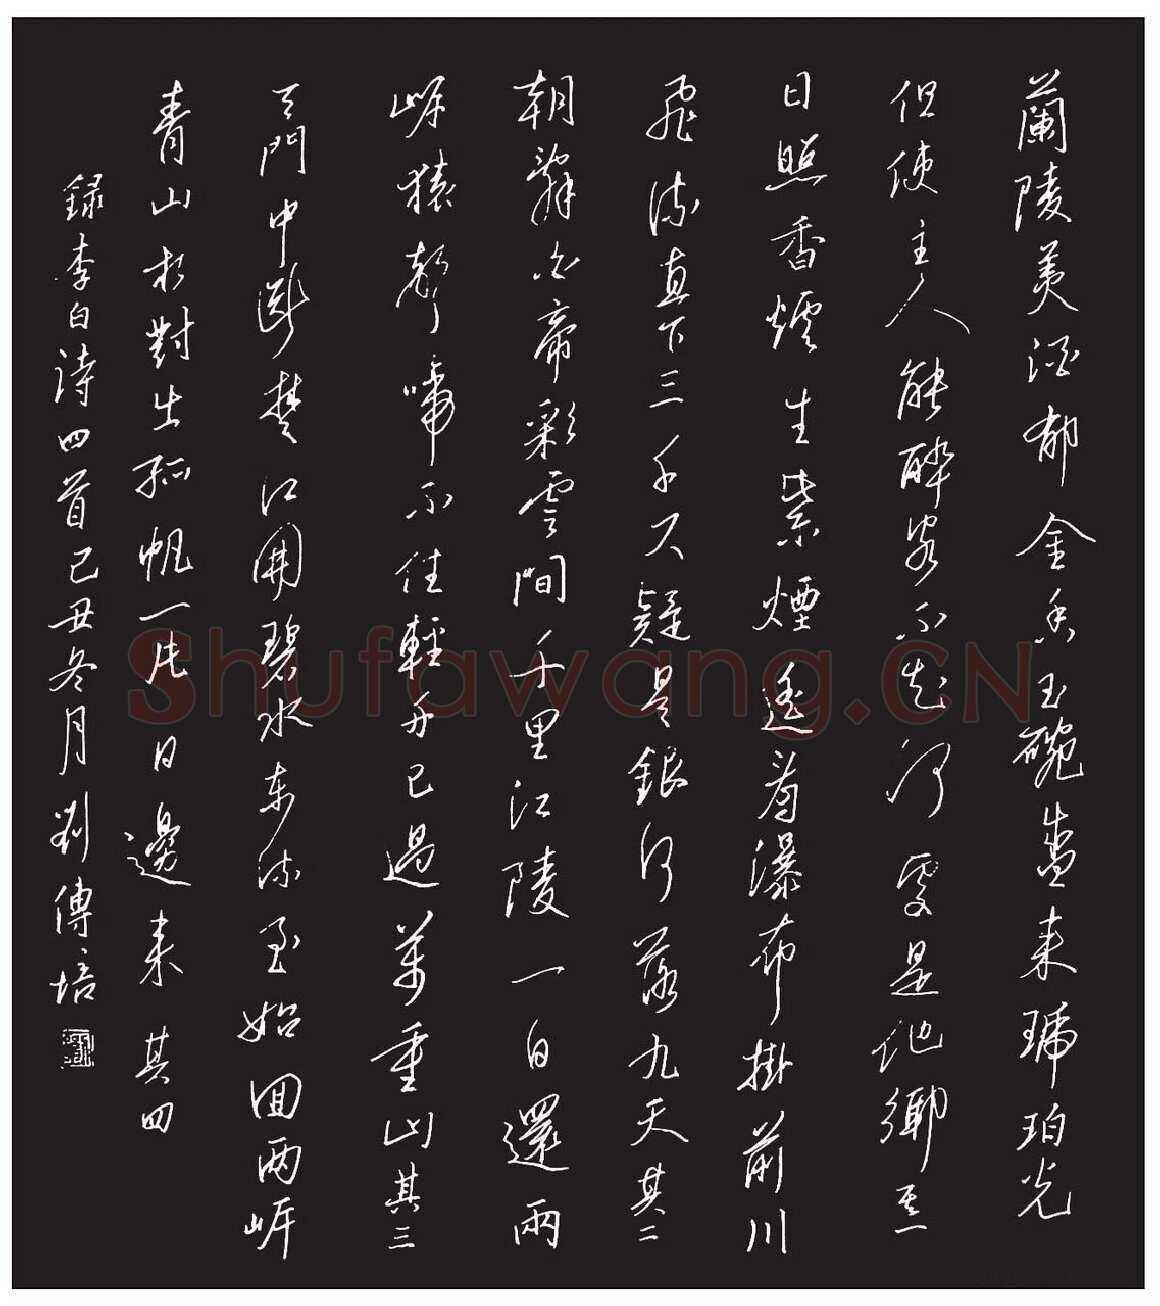 蘭陵美酒郁金香玉碗盛來琥珀光
但使主人能醉客不知何處是他鄉其一
日照香爐生紫煙遙看瀑布掛前川
飛流直下三千尺疑是銀河落九天其二
朝辭白帝彩雲間千里江陵一日還兩
岸猿聲啼不住輕舟已過萬重山其三
天門中斷楚江開碧水東流至始回兩岸
青山相對出孤帆一片日邊來其四
録李白詩四首己丑冬月劉傳培
Shufawang.CN